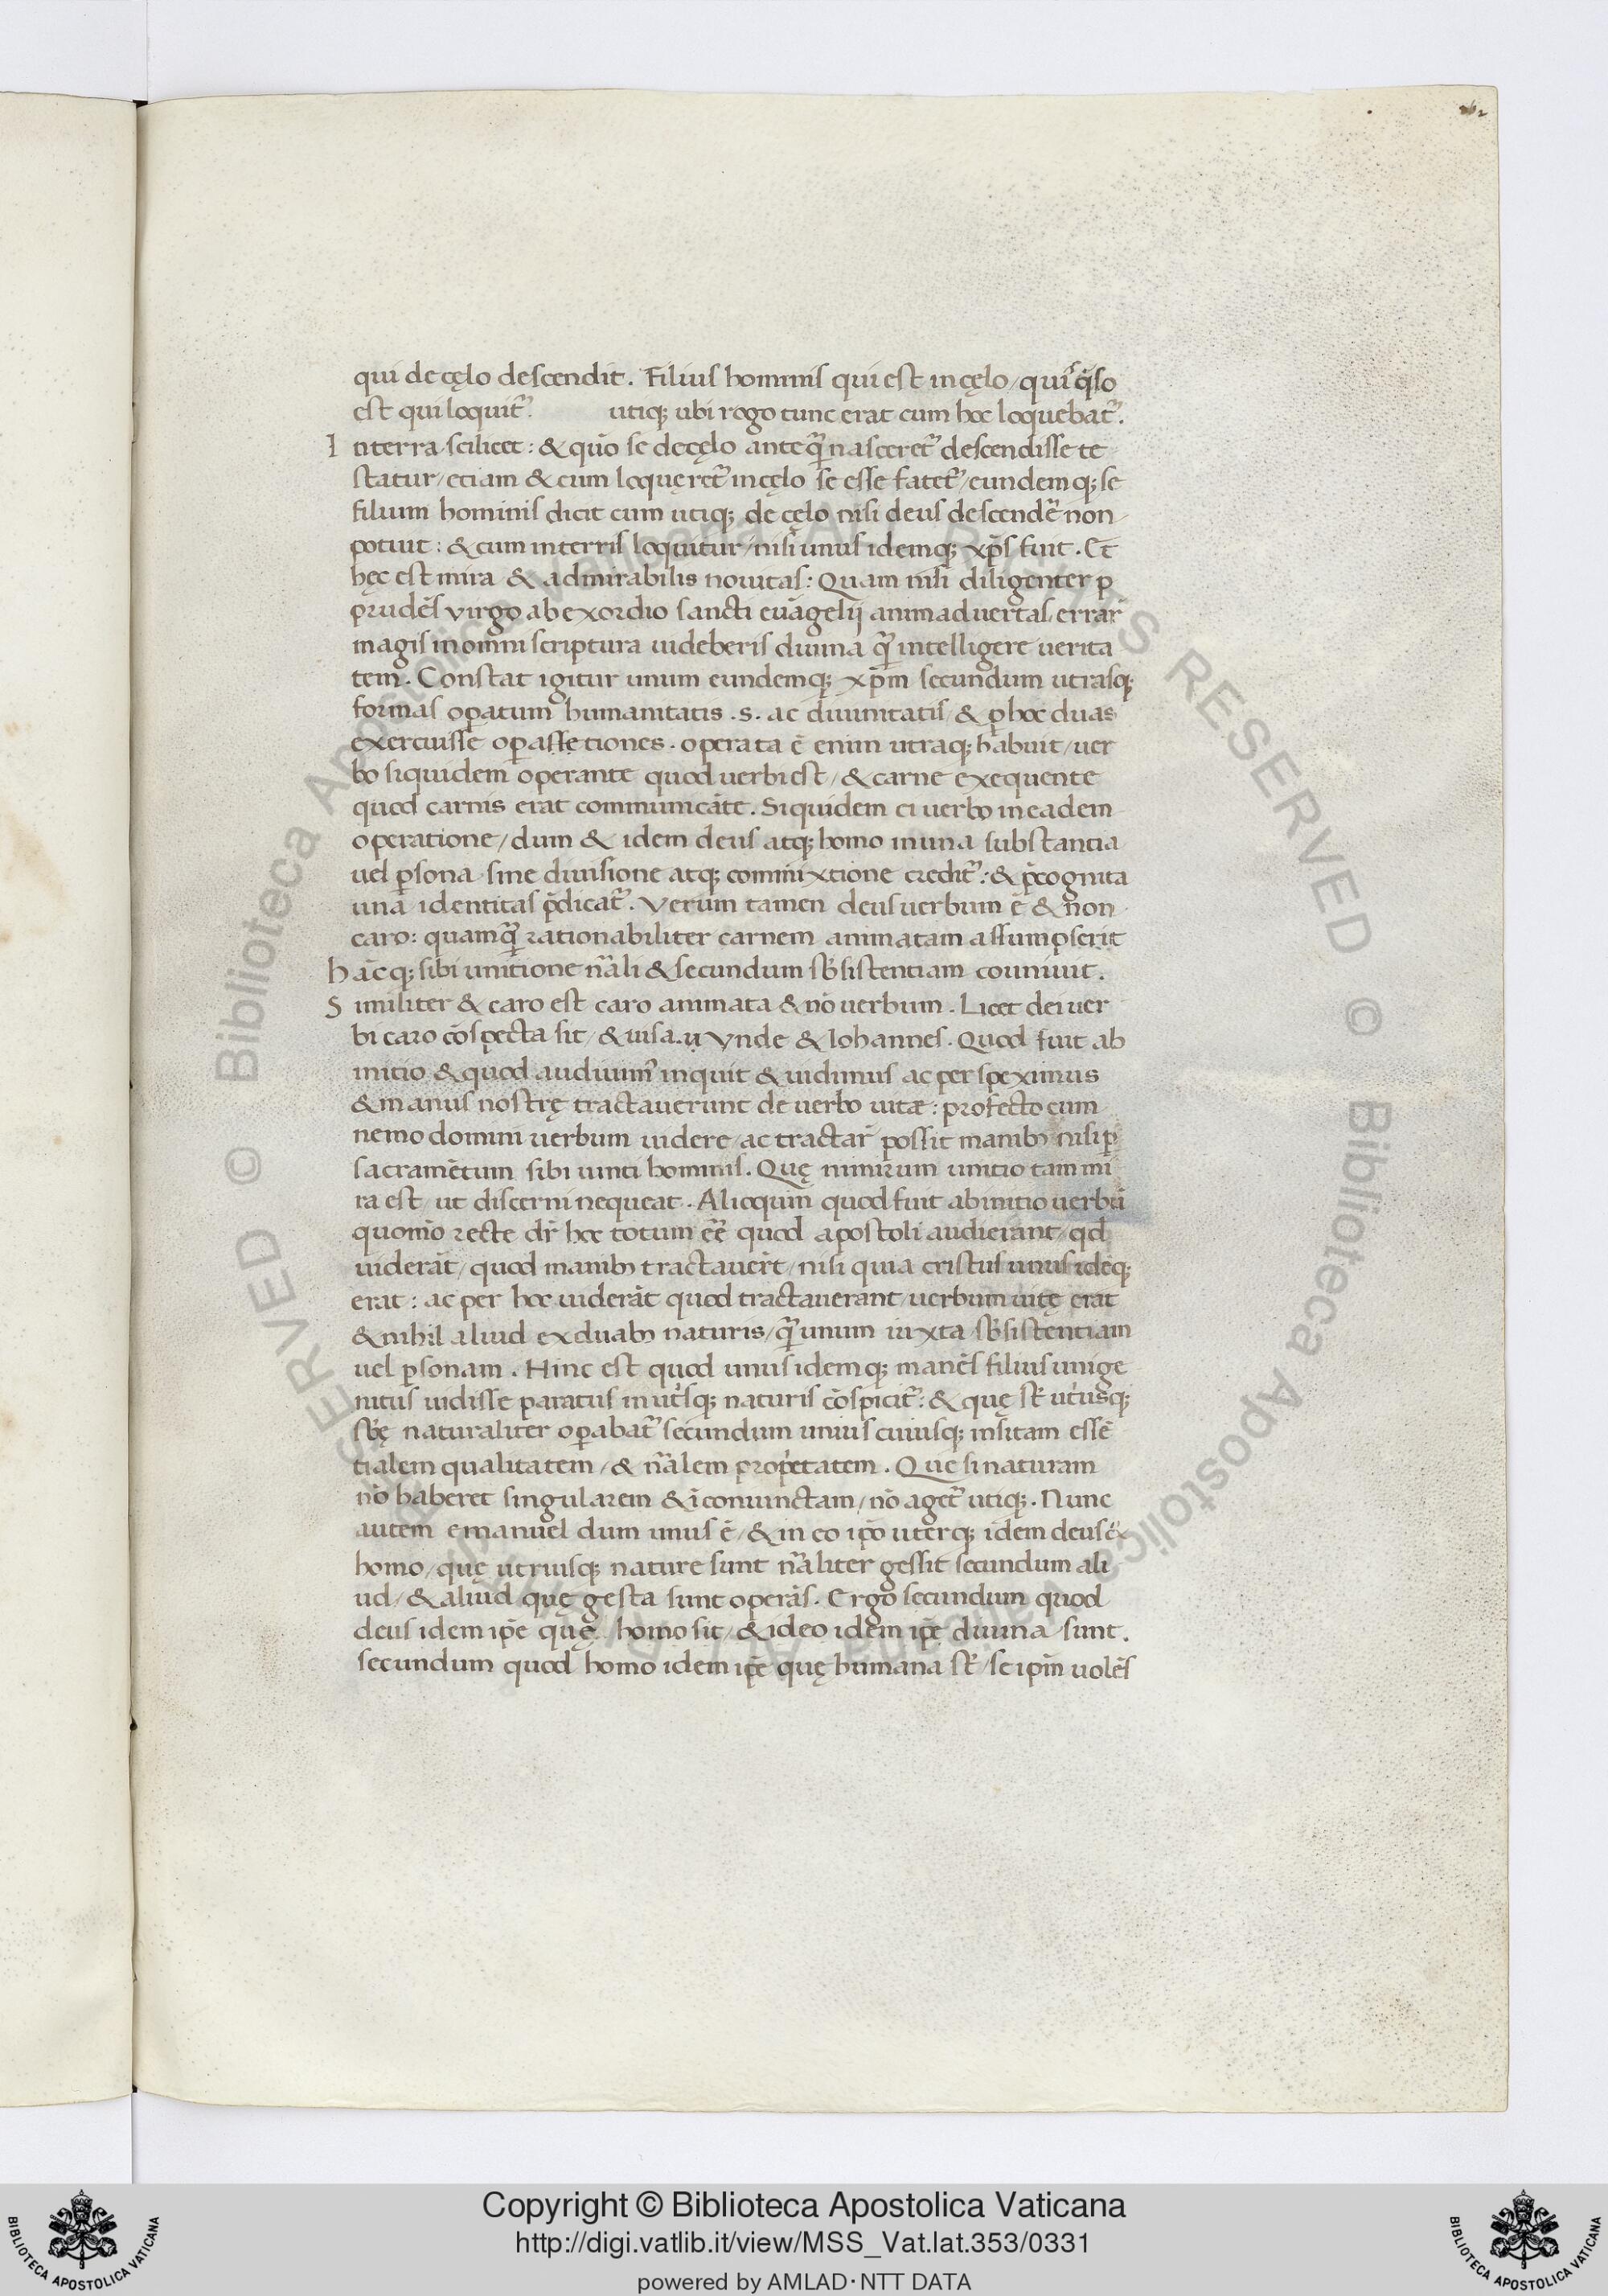 qui de cęlo descendit. Filius hominis qui est in cęlo / qui q̄so
est qui loquit᷑. utiq; ubi rogo tunc erat cum hoc loquebat᷑.
In terra scilicet: & quō se de cęlo ante q̄ nasceret᷑ descendisse te
statur / etiam & cum loqueret᷑ in cęlo se esse fatet᷑ / eundemq; se
filium hominis dicit cum utiq; de cęlo nisi deus descender̄ non
potuit: & cum in terris loquitur / nisi unus idemq; xp̄s fuit. Et
hęc est mira & admirabilis nouitas: Quam nisi diligenter p
prudēs virgo ab exordio sancti euāgelij animaduertas / errar̄
magis in omni scriptura uideberis diuina q̄ intelligere uerita
tem. Constat igitur unum eundemq; xp̄m secundum utrasq;
formas operatum humanitatis .s. ac diuinitatis / & ꝑ hoc duas
exercuisse operassetiones. operata ē enim utraq; habuit / uer
bo siquidem operante quod uerbi est / & carne exequente
quod carnis erat communicāte. Siquidem ei uerbo in eadem
operatione / dum & idem deus atq; homo in una substantia
uel ꝑsona sine diuisione atq; commixtione credit᷑: & p̄cognita
una identitas p̄dicat᷑. Verum tamen deus uerbum ē & non
caro: quamq̄ rationabiliter carnem animatam assumpserit
hācq; sibi unitione nr̄ali & secundum sb̄sistentiam couniuit.
Similiter & caro est caro animata & nō uerbum. Licet dei uer
bi caro cōspecta sit / & uisa. ụ Vnde & Iohannes. Quod fuit ab
initio & quod audiuim᷒ inquit & uidimus ac perspeximus
& manus nostrę tractauerunt de uerbo uitæ: profecto cum
nemo domini uerbum uidere ac tractar̄ possit manib; nisi ꝑ
sacramētum sibi uniti hominis. Quę nimirum unitio tam mi
ra est / ut discerni nequeat. Alioquin quod fuit ab initio uerbū
quomō recte dr̄ hoc totum eē̄ quod apostoli audierant / qd
uiderāt / quod manib; tractauer̄t / nisi quia cristus unus idēq;
erat: ac per hoc uiderāt quod tractauerant uerbum uitę erat
& nihil aliud ex duab; naturis / q̄ unum iuxta sb̄sistentiam
uel ꝑsonam. Hinc est quod unus idemq; manēs filius unige
nitus uidisse paratus in utrisq; naturis cōspicit᷑: & quę st̄ utriusq;
sb̄ę naturaliter operabat᷑ secundum uniuscuiusq; insitam essē
tialem qualitatem / & nr̄alem proprietatem. Que si naturam
nō haberet singularem & īconiunctam / nō aget᷑ utiq;. Nunc
autem emanuel dum unus ē / & in eo ip̄o uterq; idem deus &
homo / quę utriusq; nature sunt nr̄aliter gessit secundum ali
ud / & aliud quę gesta sunt operās. Ergo secundum quod
deus idem ip̄e quę homo sit / & ideo idem ip̄e diuina sunt.
secundum quod homo idem ip̄e quę humana st̄ / se ipm̄ uolēs
Copyright © Biblioteca Apostolica Vaticana
http://digi.vatlib.it/view/MSS_Vat.lat.353/0331
powered by AMLAD·NTT DATA